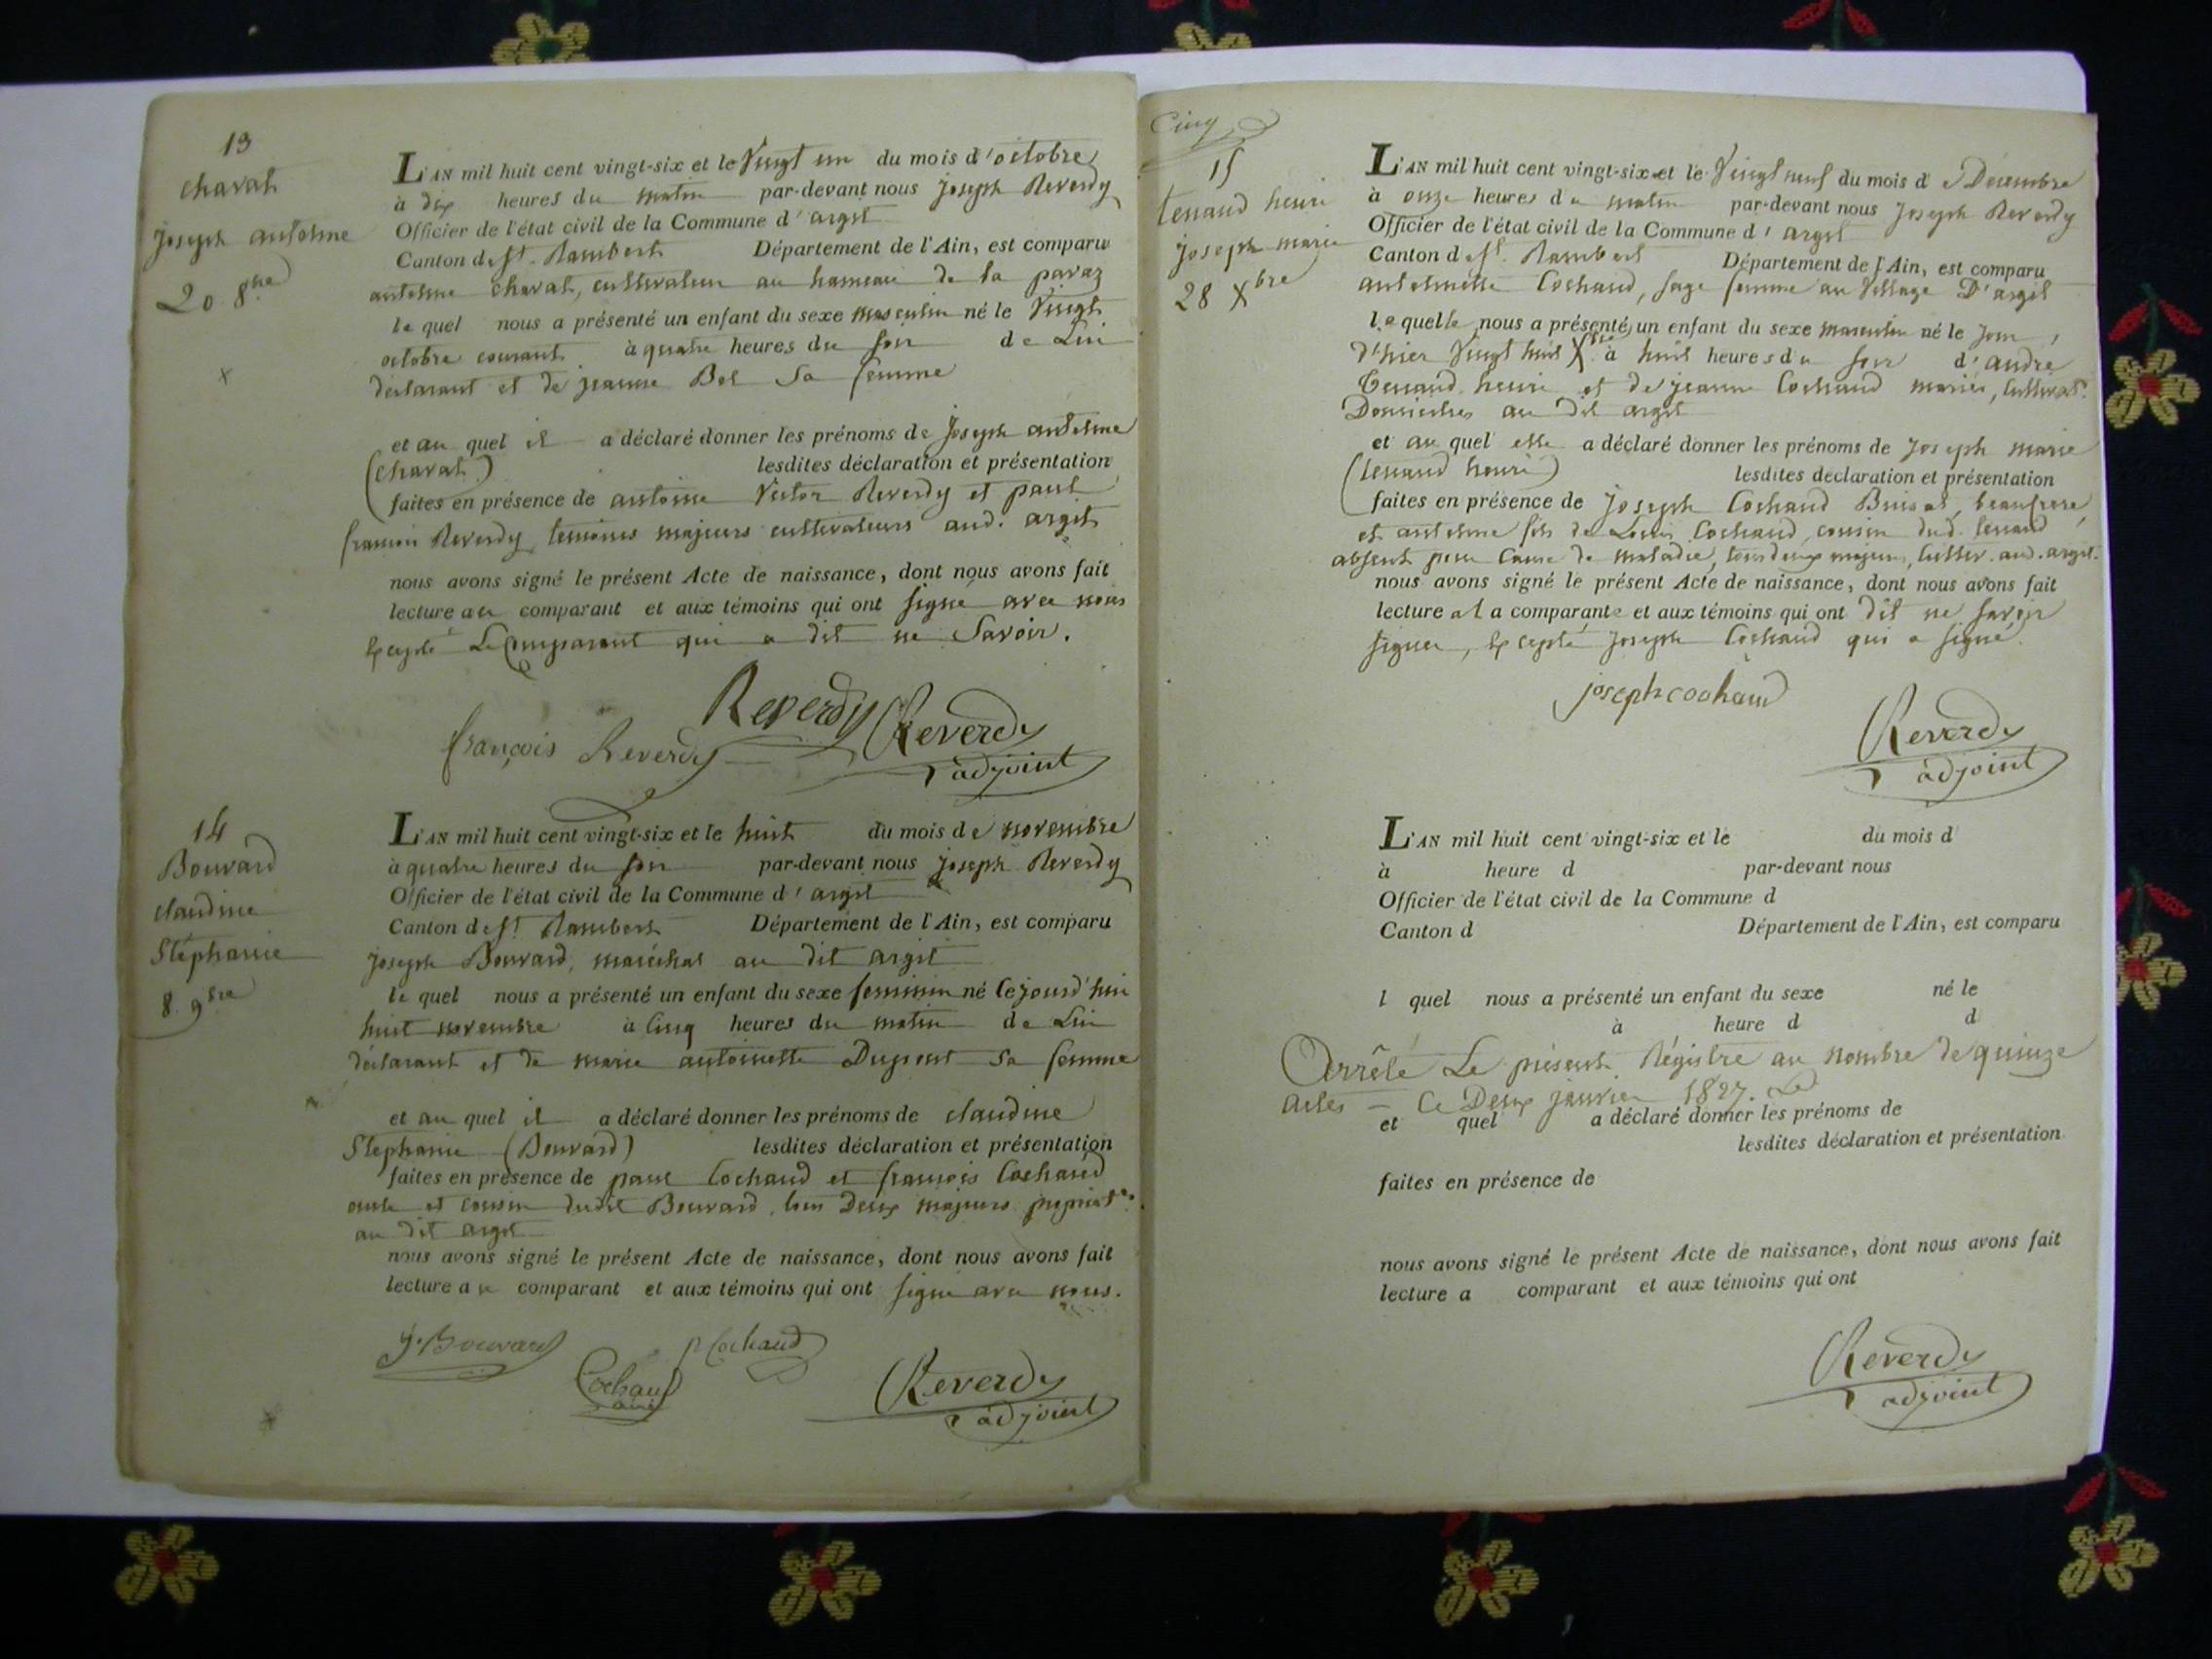 13
Chavat
Joseph antelme
20 8bre
L'AN mil huit cent vingt-six et le Vingt un du mois d'octobre
à dix heures du matin par-devant nous Joseph Reverdy
Officier de l'état civil de la Commune d'argit
Canton de St. Rambert Département de l'Ain, est comparu
antelme Chavat, cultivateur au hameau de la paraz
le quel nous a présenté un enfant du sexe masculin né le Vingt
octobre courant à quatre heures du soir de Lui
déclarant et de jeanne Bel sa femme
et au quel il a déclaré donner les prénoms de Joseph antelme
(Chavat) lesdites déclaration et présentation
faites en présence de antoine Victor Reverdy et paul
francois Reverdy, temoins majeurs cultivateurs aud. argit
nous avons signé le présent Acte de naissance, dont nous avons fait
lecture au comparant et aux témoins qui ont signé avec nous
Excepté Le Comparant qui a dit ne Savoir.
Reverdy
françois Reverdy
Reverdy
adjoint
14
Bouvard
claudine
Stéphanie
8. 9bre
L'AN mil huit cent vingt-six et le huit du mois de novembre
à quatre heures du soir par-devant nous Joseph Reverdy
Officier de l'état civil de la Commune d'argit
Canton de St. Rambert Département de l'Ain, est comparu
Joseph Bouvard, maréchal au dit argit
le quel nous a présenté un enfant du sexe feminin né Cejourd'hui
huit novembre à Cinq heures du matin de Lui
déclarant et de marie antoinette Dupont sa femme
et au quel il a déclaré donner les prénoms de claudine
Stephanie (Bouvard) lesdites déclaration et présentation
faites en présence de paul Cochaud et francois Cochaud
oncle et cousin dudit Bouvard, tous Deux majeurs propriet.
au dit argit
nous avons signé le présent Acte de naissance, dont nous avons fait
lecture au comparant et aux témoins qui ont signé avec nous.
J. Bouvard
p Cochaud
Cochaud
ainé
Reverdy
adjoint
Cinq
15
tenaud henri
Joseph marie
28 Xbre
L'AN mil huit cent vingt-six et le Vingt neuf du mois de Décembre
à onze heures du matin par-devant nous Joseph Reverdy
Officier de l'état civil de la Commune d'argit
Canton de St. Rambert Département de l'Ain, est comparu
antelmette Cochaud, sage femme au Village D'argit
laquelle nous a présenté un enfant du sexe masculin né le Jour
d'hier Vingt huit Xbre à huit heures du soir d'andré
Tenaud henri et de jeanne Cochaud mariés, cultivat.
Domiciliés au dit argit
et au quel elle a déclaré donner les prénoms de Joseph marie
(tenaud henri) lesdites declaration et présentation
faites en présence de Joseph Cochaud Buisat, beaufrere,
et antelme fils de Louis Cochaud, cousin dud. tenaud
absent pour Cause de maladie, tous deux majeurs, cultiv. aud. argit.
nous avons signé le présent Acte de naissance, dont nous avons fait
lecture a la comparante et aux témoins qui ont dit ne savoir
signer, Excepté Joseph Cochaud qui a signé.
joseph cochaud
Reverdy
adjoint
L'AN mil huit cent vingt-six et le du mois d
à heure d par-devant nous
Officier de l'état civil de la Commune d
Canton d Département de l'Ain, est comparu
l quel nous a présenté un enfant du sexe né le
à heure d d
Arrêté Le présent Régistre au nombre de quinze
actes — Ce Deux janvier 1827.
et quel a déclaré donner les prénoms de
lesdites déclaration et présentation
faites en présence de
nous avons signé le présent Acte de naissance, dont nous avons fait
lecture a comparant et aux témoins qui ont
Reverdy
adjoint